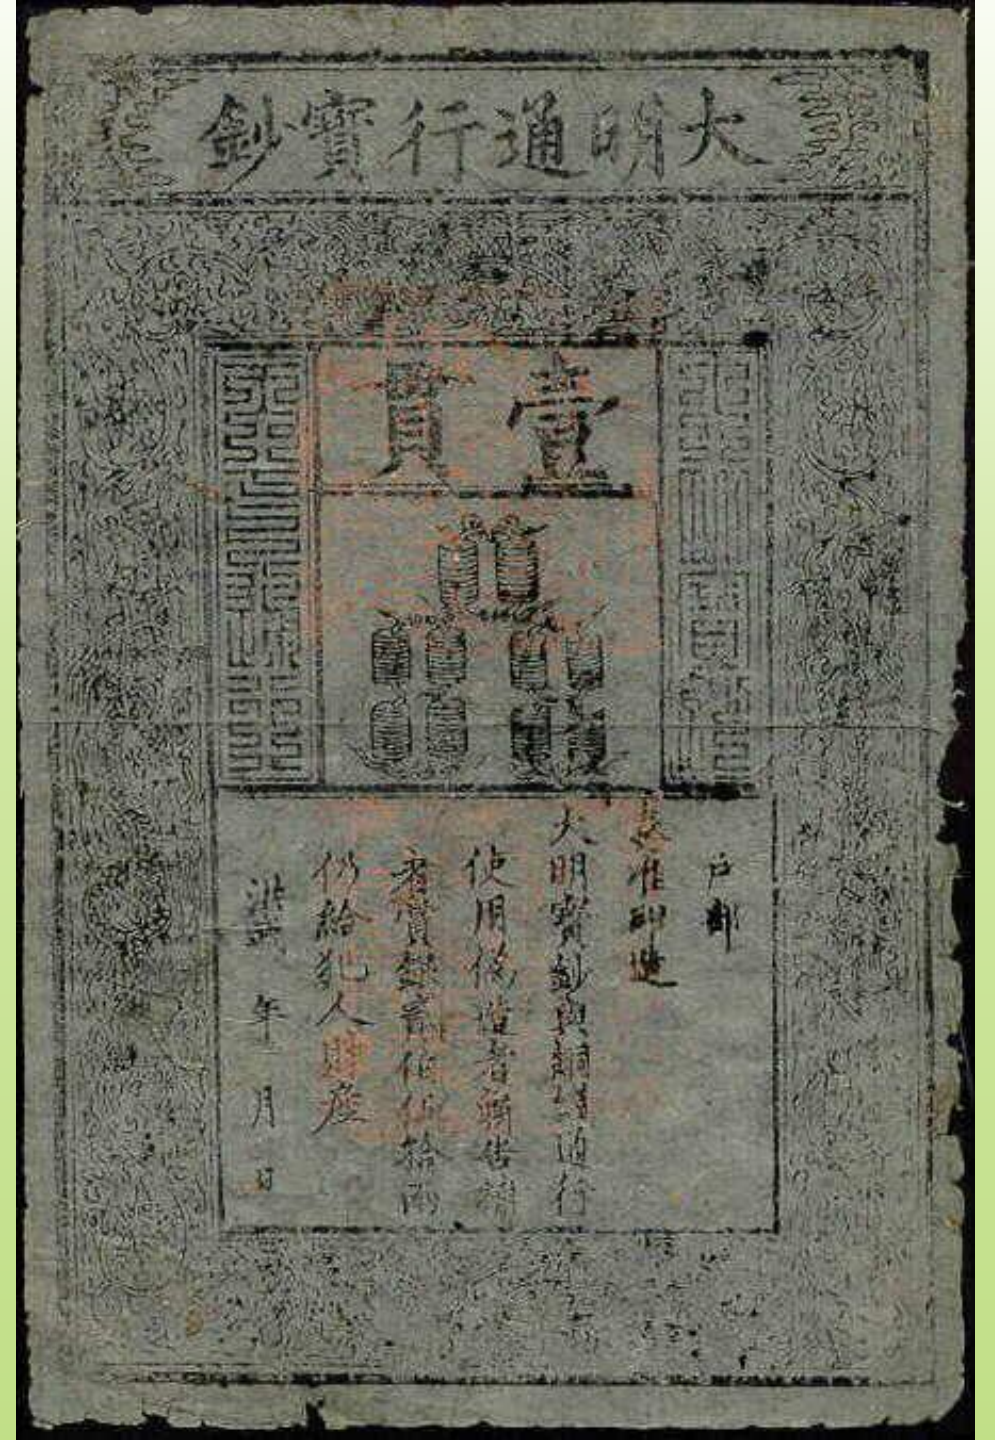 大明通行寶鈔
大明寶鈔
壹貫
天下通行
户部
奏准印造
大明寶鈔與銅錢通行
使用偽造者斬告捕
者賞銀貳伯伍拾兩
仍給犯人財産
洪武 年 月 日